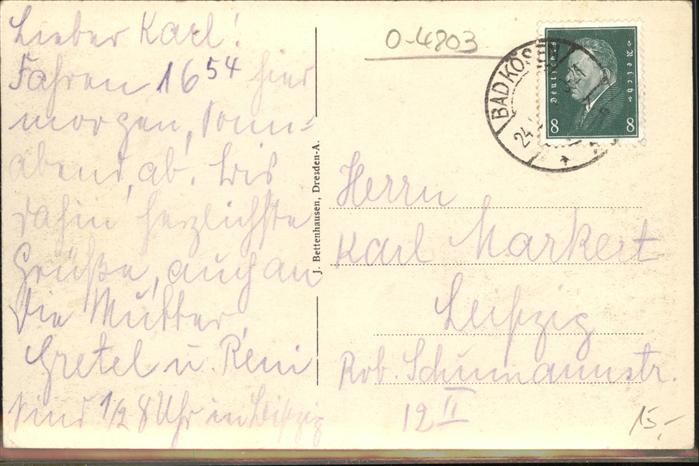 Lieber Karl!
Fahren 16⁵⁴ hier
morgen, Sonn-
abend, ab. Bis
dahin herzlichste
Grüße, auch an
die Mutter,
Gretel u. Reni
Sind 1/2 8 Uhr in Leipzig
J. Bettenhausen, Dresden-A.
0-4803
BAD KÖS
24.
Deutsches Reich
8 8
Herrn
Karl Markert
Leipzig
Rob. Schumannstr.
12 II
15,-